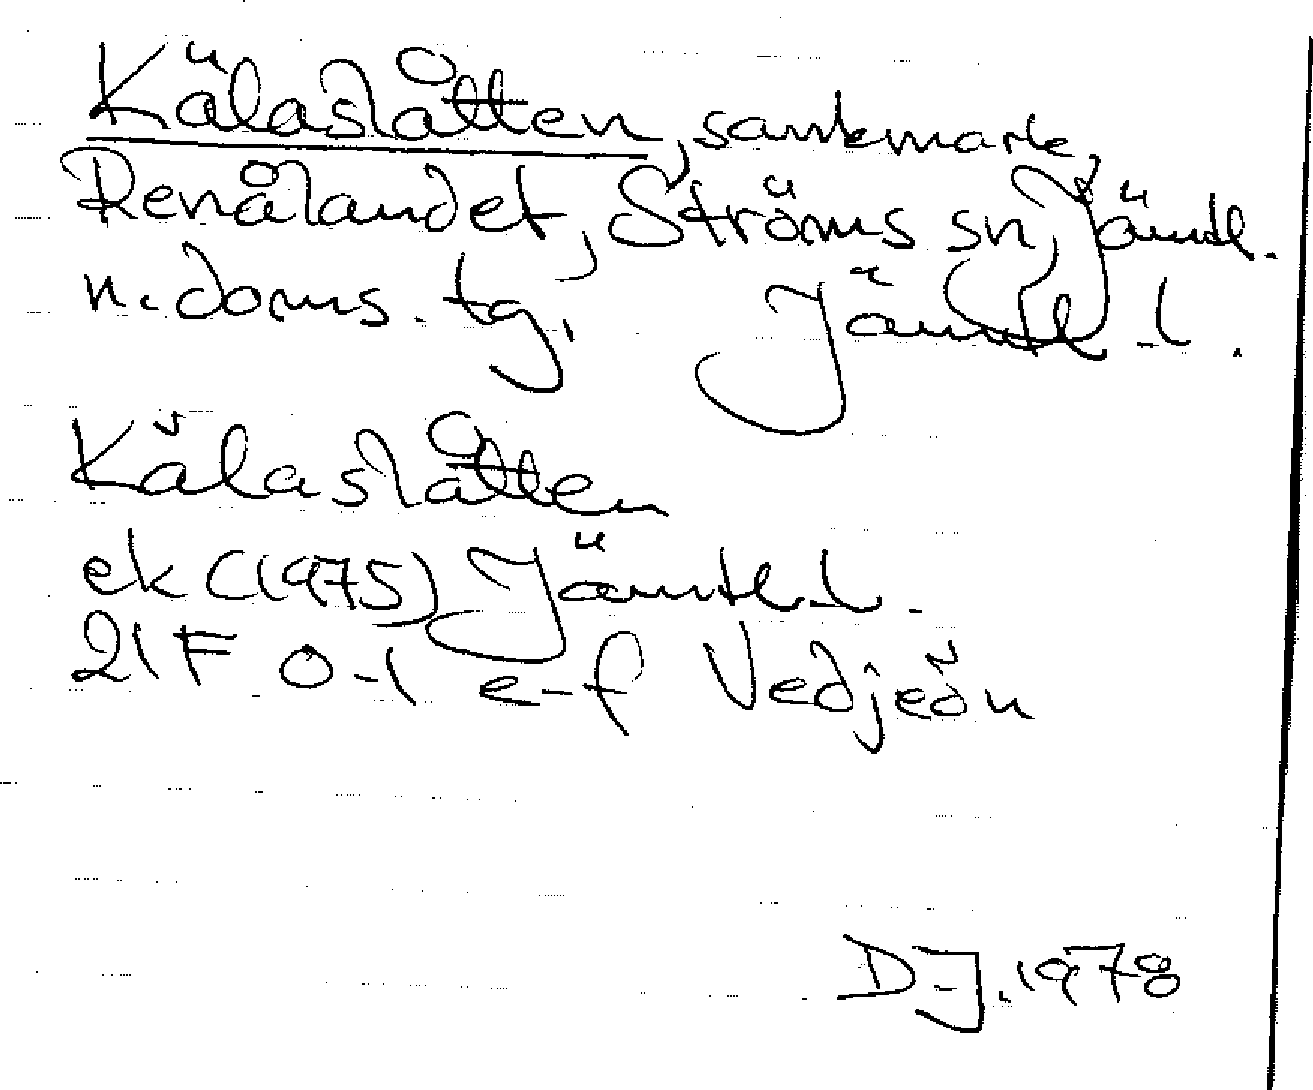 Kälaslåtten, sankmark,
Renålandet, Ströms sn, Jämtl.
n. doms. tg, Jämtl. l.
Kälaslåtten
ek (1975) Jämtl. l.
21F 0-1 e-f Vedjeön
DJ. 1978